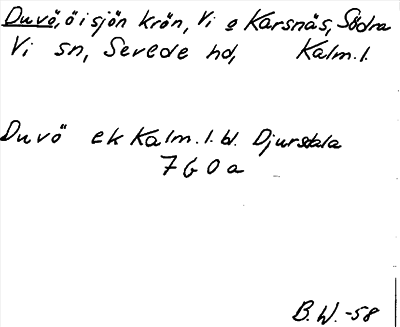 Duvö, ö i sjön Krön, Vi o Karsnäs, Södra
Vi sn, Sevede hd, Kalm. l.
Duvö ek Kalm. l. bl. Djursdala
7 G 0 a
B. W. -58